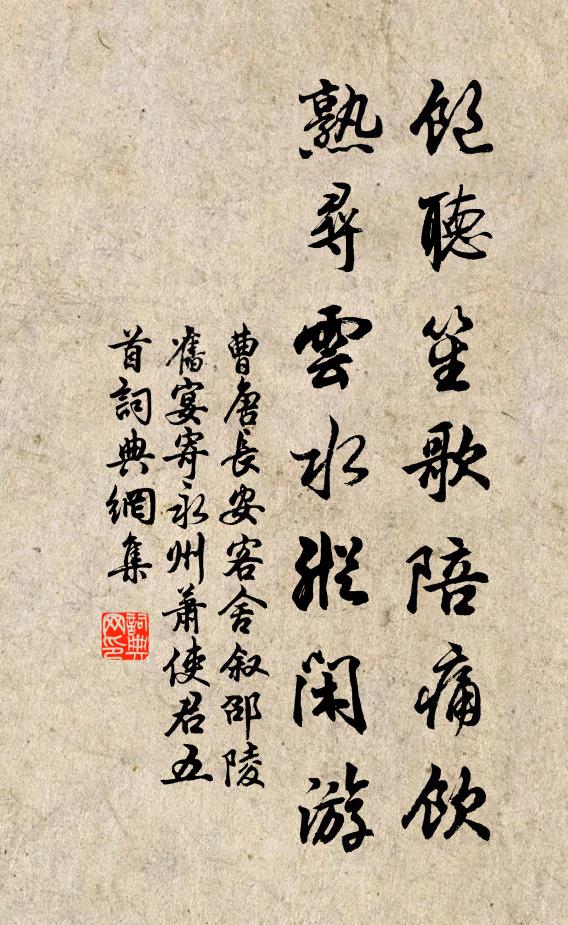 飽聽笙歌陪痛飲
熟尋雲水縱閑游
曹唐長安客舍叙邵陵
舊宴寄永州蕭使君五
首詞典網集
詞典
网印